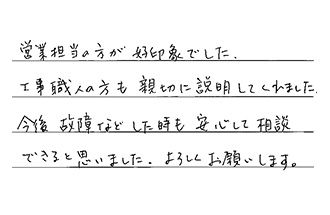 営業担当の方が好印象でした.
工事職人の方も親切に説明してくれました.
今後故障などした時も安心して相談
できると思いました. よろしくお願いします。